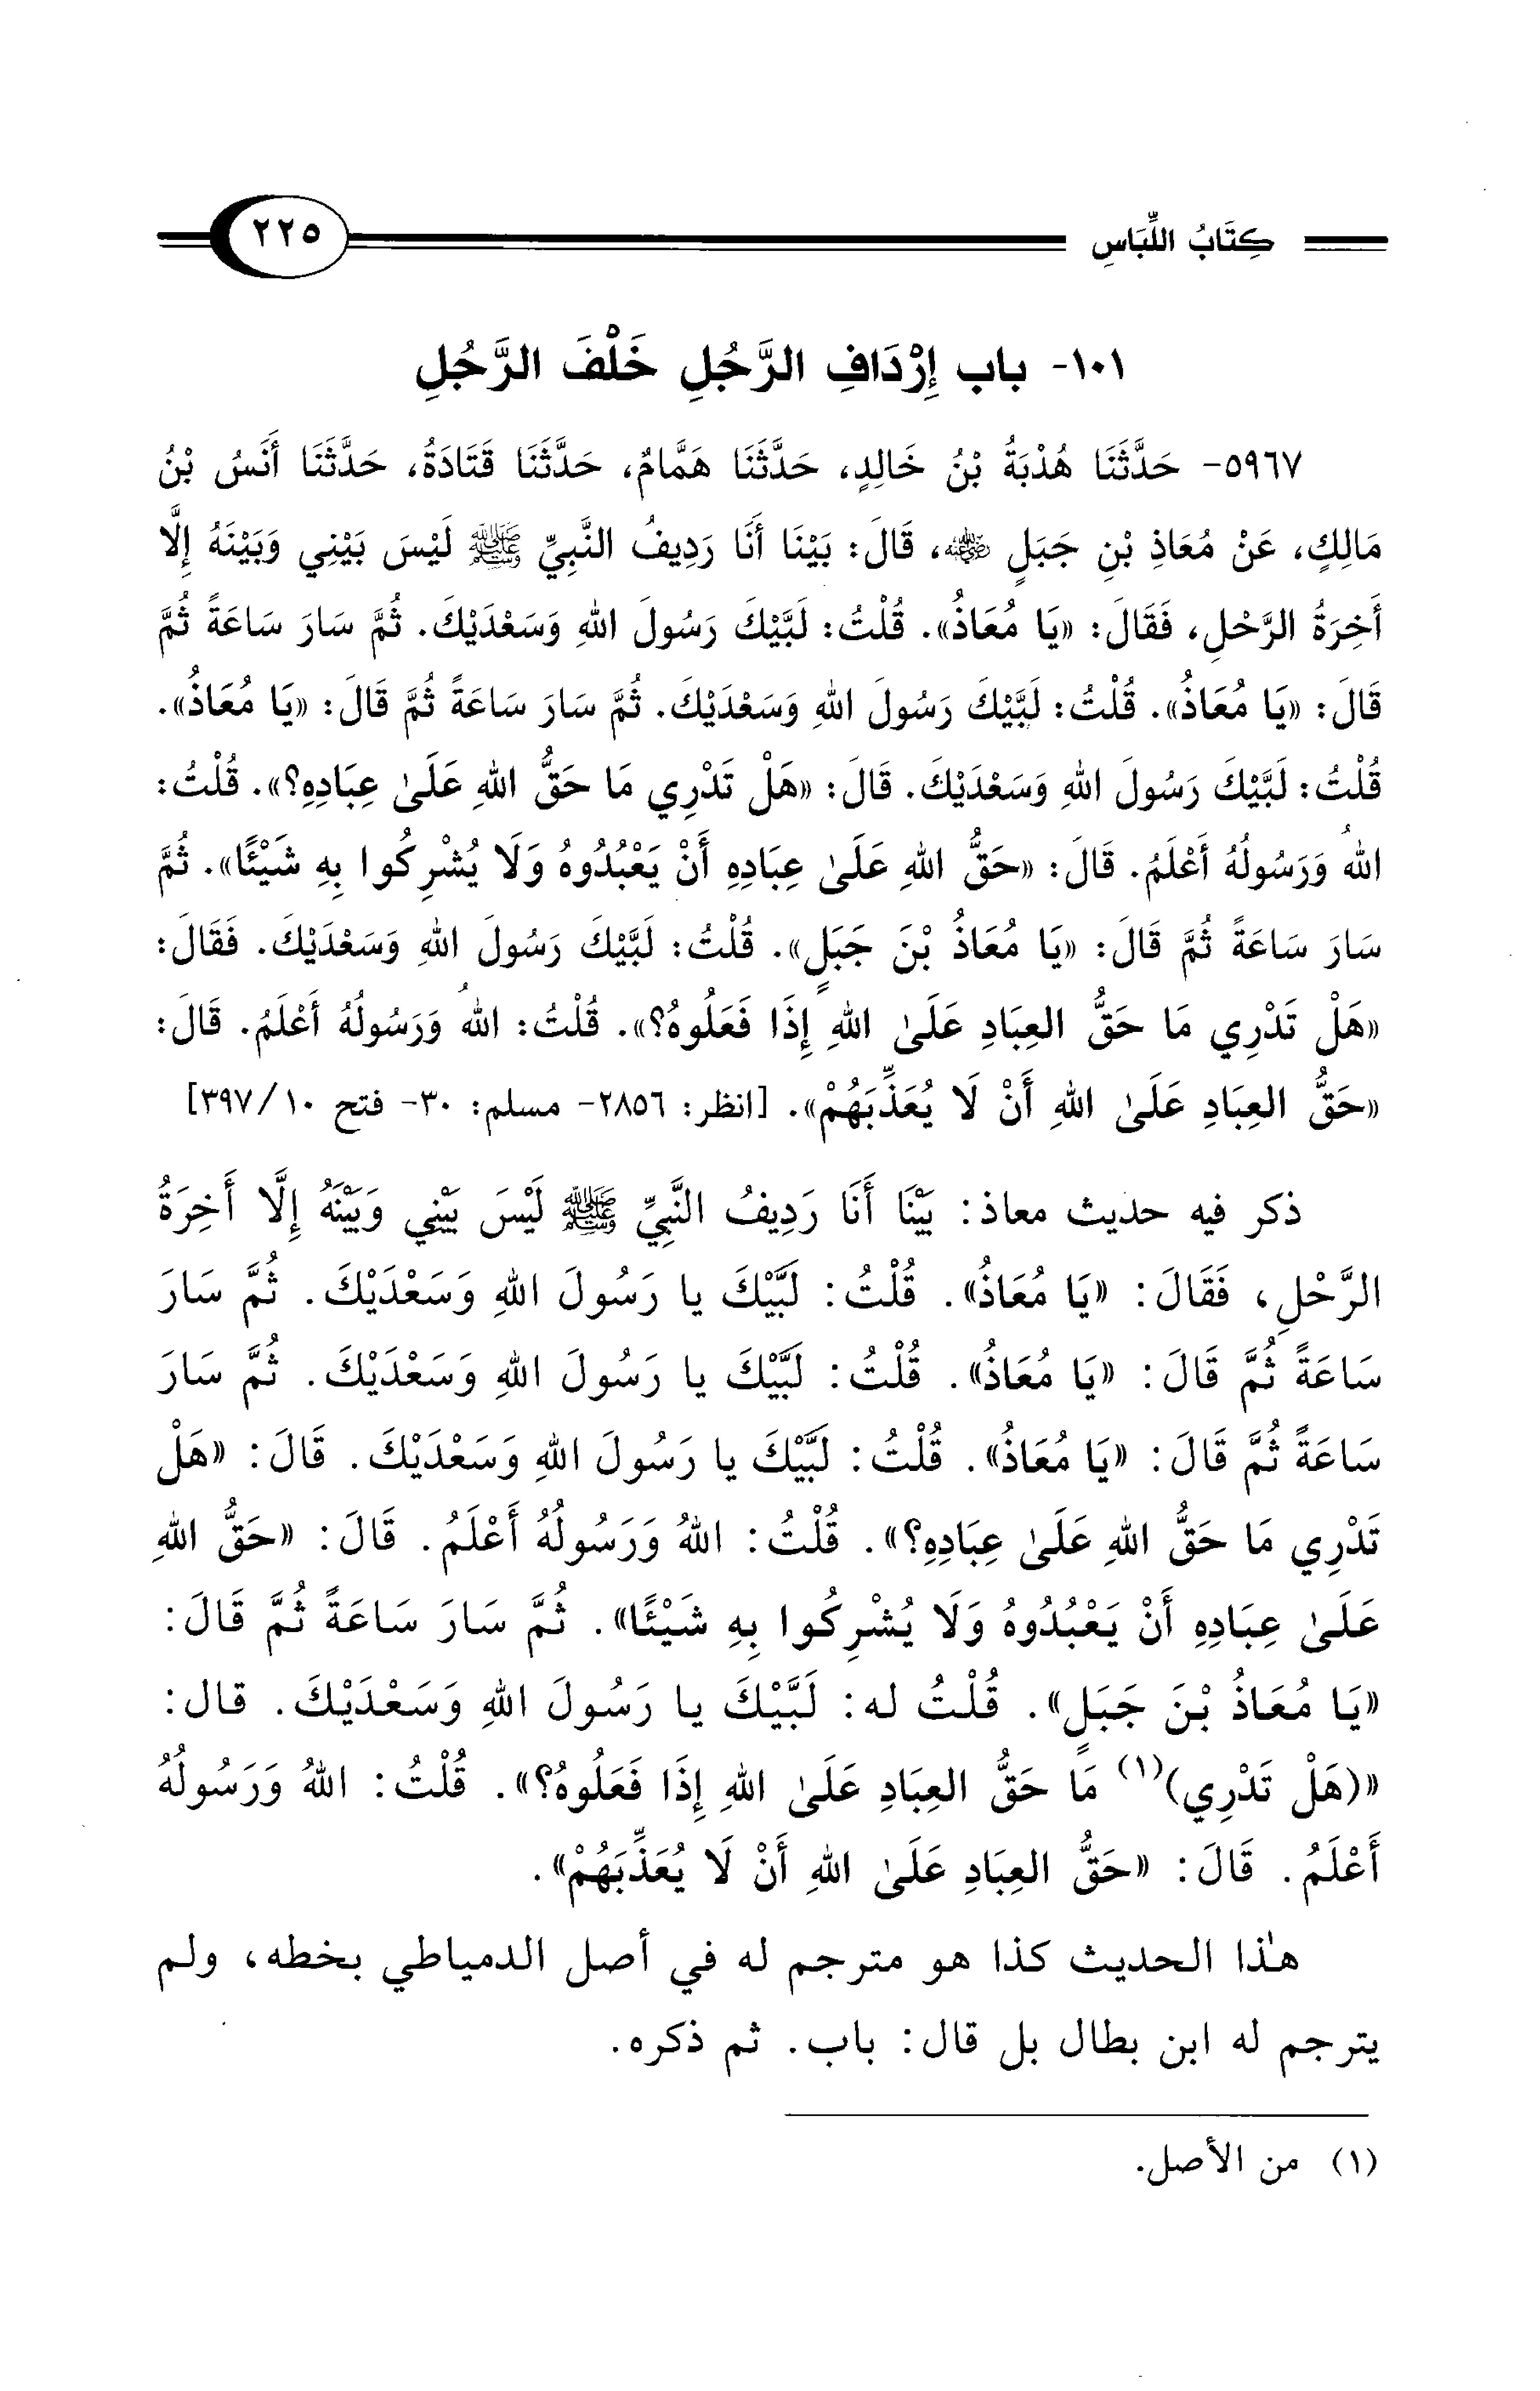 كِتَابُ اللِّبَاسِ ٢٢٥
١٠١- باب إِرْدَافِ الرَّجُلِ خَلْفَ الرَّجُلِ
٥٩٦٧- حَدَّثَنَا هُدْبَةُ بْنُ خَالِدٍ، حَدَّثَنَا هَمَّامٌ، حَدَّثَنَا قَتَادَةُ، حَدَّثَنَا أَنَسُ بْنُ
مَالِكٍ، عَنْ مُعَاذِ بْنِ جَبَلٍ رضي الله عنه، قَالَ: بَيْنَا أَنَا رَدِيفُ النَّبِيِّ ﷺ لَيْسَ بَيْنِي وَبَيْنَهُ إِلَّا
أَخِرَةُ الرَّحْلِ، فَقَالَ: «يَا مُعَاذُ». قُلْتُ: لَبَّيْكَ رَسُولَ اللهِ وَسَعْدَيْكَ. ثُمَّ سَارَ سَاعَةً ثُمَّ
قَالَ: «يَا مُعَاذُ». قُلْتُ: لَبَّيْكَ رَسُولَ اللهِ وَسَعْدَيْكَ. ثُمَّ سَارَ سَاعَةً ثُمَّ قَالَ: «يَا مُعَاذُ».
قُلْتُ: لَبَّيْكَ رَسُولَ اللهِ وَسَعْدَيْكَ. قَالَ: «هَلْ تَدْرِي مَا حَقُّ اللهِ عَلَىٰ عِبَادِهِ؟». قُلْتُ:
اللهُ وَرَسُولُهُ أَعْلَمُ. قَالَ: «حَقُّ اللهِ عَلَىٰ عِبَادِهِ أَنْ يَعْبُدُوهُ وَلَا يُشْرِكُوا بِهِ شَيْئًا». ثُمَّ
سَارَ سَاعَةً ثُمَّ قَالَ: «يَا مُعَاذُ بْنَ جَبَلٍ». قُلْتُ: لَبَّيْكَ رَسُولَ اللهِ وَسَعْدَيْكَ. فَقَالَ:
«هَلْ تَدْرِي مَا حَقُّ العِبَادِ عَلَىٰ اللهِ إِذَا فَعَلُوهُ؟». قُلْتُ: اللهُ وَرَسُولُهُ أَعْلَمُ. قَالَ:
«حَقُّ العِبَادِ عَلَىٰ اللهِ أَنْ لَا يُعَذِّبَهُمْ». [انظر: ٢٨٥٦- مسلم: ٣٠- فتح ١٠/ ٣٩٧]
ذكر فيه حديث معاذ: بَيْنَا أَنَا رَدِيفُ النَّبِيِّ ﷺ لَيْسَ بَيْنِي وَبَيْنَهُ إِلَّا أَخِرَةُ
الرَّحْلِ، فَقَالَ: «يَا مُعَاذُ». قُلْتُ: لَبَّيْكَ يا رَسُولَ اللهِ وَسَعْدَيْكَ. ثُمَّ سَارَ
سَاعَةً ثُمَّ قَالَ: «يَا مُعَاذُ». قُلْتُ: لَبَّيْكَ يا رَسُولَ اللهِ وَسَعْدَيْكَ. ثُمَّ سَارَ
سَاعَةً ثُمَّ قَالَ: «يَا مُعَاذُ». قُلْتُ: لَبَّيْكَ يا رَسُولَ اللهِ وَسَعْدَيْكَ. قَالَ: «هَلْ
تَدْرِي مَا حَقُّ اللهِ عَلَىٰ عِبَادِهِ؟». قُلْتُ: اللهُ وَرَسُولُهُ أَعْلَمُ. قَالَ: «حَقُّ اللهِ
عَلَىٰ عِبَادِهِ أَنْ يَعْبُدُوهُ وَلَا يُشْرِكُوا بِهِ شَيْئًا». ثُمَّ سَارَ سَاعَةً ثُمَّ قَالَ:
«يَا مُعَاذُ بْنَ جَبَلٍ». قُلْتُ له: لَبَّيْكَ يا رَسُولَ اللهِ وَسَعْدَيْكَ. قال:
«(هَلْ تَدْرِي)(١) مَا حَقُّ العِبَادِ عَلَىٰ اللهِ إِذَا فَعَلُوهُ؟». قُلْتُ: اللهُ وَرَسُولُهُ
أَعْلَمُ. قَالَ: «حَقُّ العِبَادِ عَلَىٰ اللهِ أَنْ لَا يُعَذِّبَهُمْ».
هٰذا الحديث كذا هو مترجم له في أصل الدمياطي بخطه، ولم
يترجم له ابن بطال بل قال: باب. ثم ذكره.
(١) من الأصل.